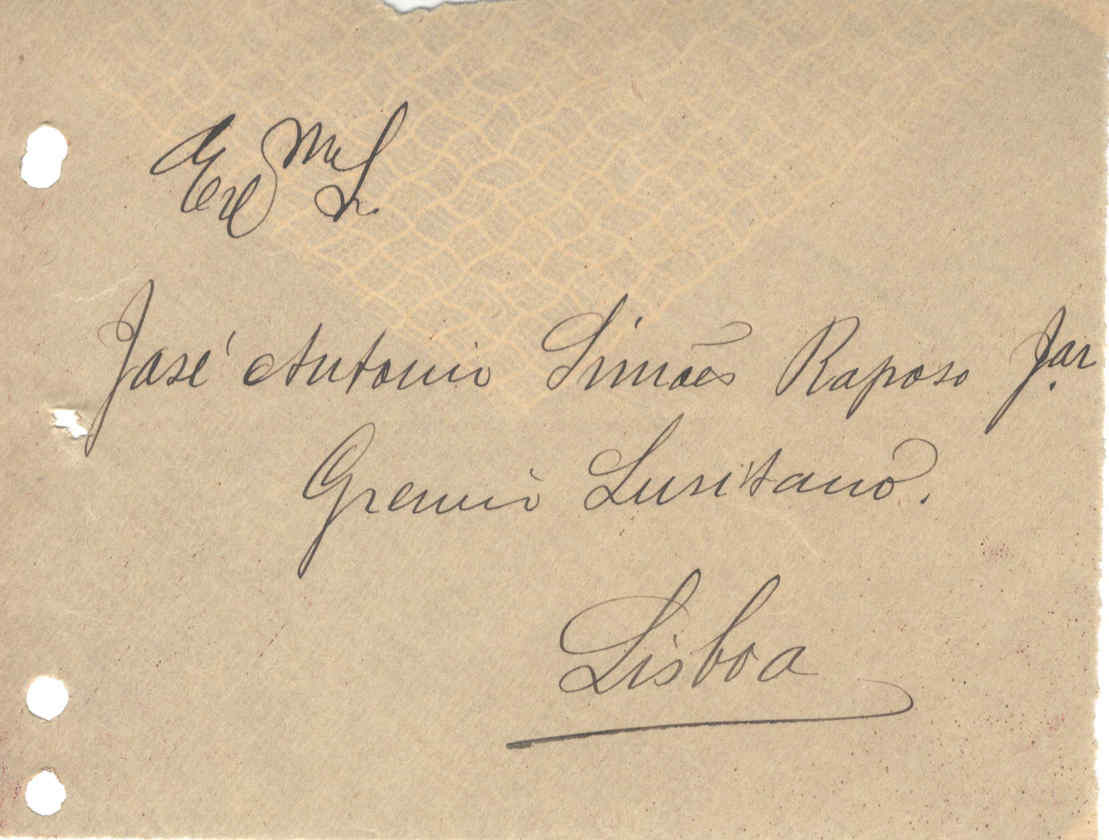 Exmo Sr.
José Antonio Simões Raposo Jor
Gremio Lusitano.
Lisboa